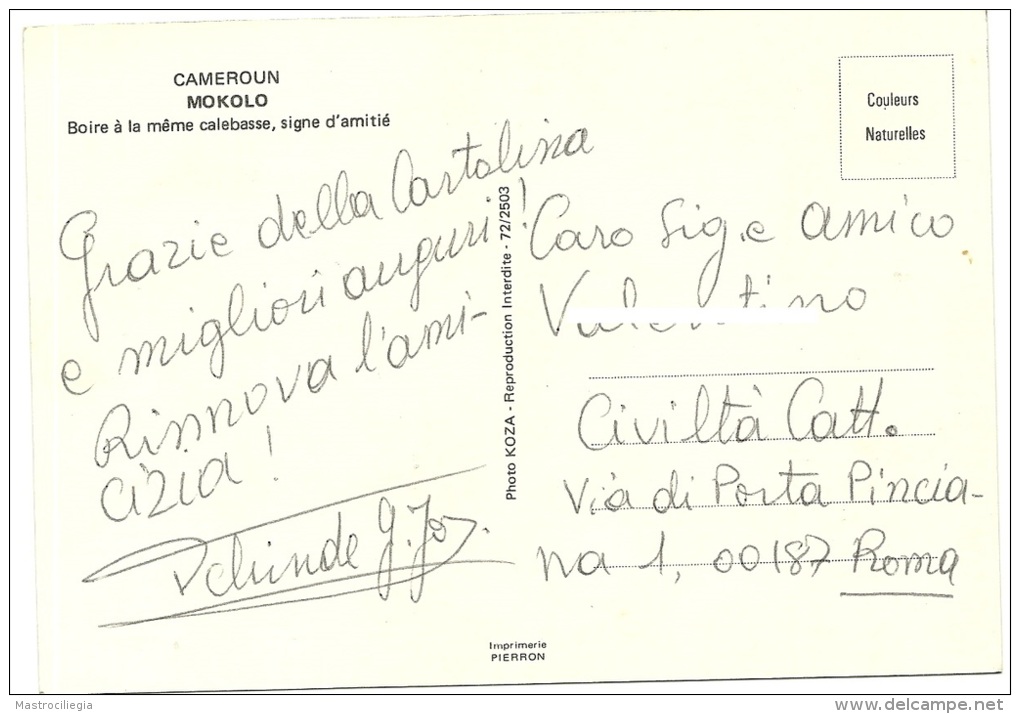 CAMEROUN
MOKOLO
Boire à la même calebasse, signe d'amitié
Grazie della Cartolina
e migliori auguri!
Rinnova l'ami-
cizia!
G. Jos.
Photo KOZA - Reproduction Interdite - 72/2503
Couleurs
Naturelles
Caro Sig. e amico
Valentino
Civiltà Catt.
Via di Porta Pincia-
na 1, 00187 Roma
Imprimerie
PIERRON
Mastrociliegia
www.delcampe.net